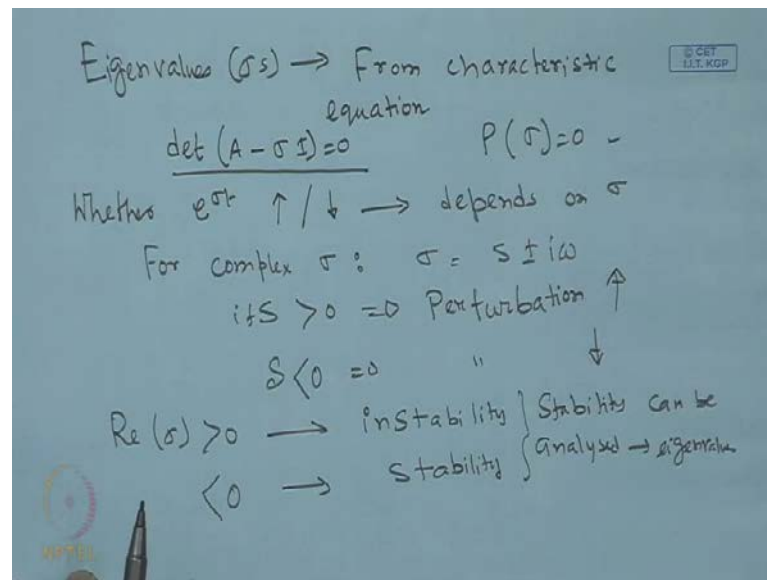 Eigenvalues (σs) → From characteristic
equation
© CET
I.I.T. KGP
det (A - σI)=0 P(σ)=0 -
Whether e^σt ↑ / ↓ → depends on σ
For complex σ : σ = S ± iω
if S > 0 => Perturbation ↑
S < 0 => " ↓
Re (σ) > 0 → instability } Stability can be
< 0 → Stability } analysed → eigenvalues
NPTEL